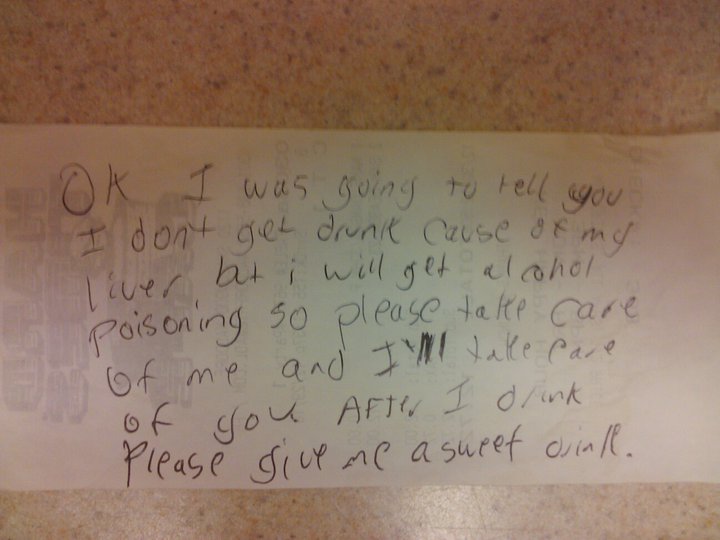 OK I was going to tell you
I don't get drunk cause of my
liver but i will get alcohol
poisoning so please take care
of me and I'll take care
of you After I drink
Please give me a sweet drink.